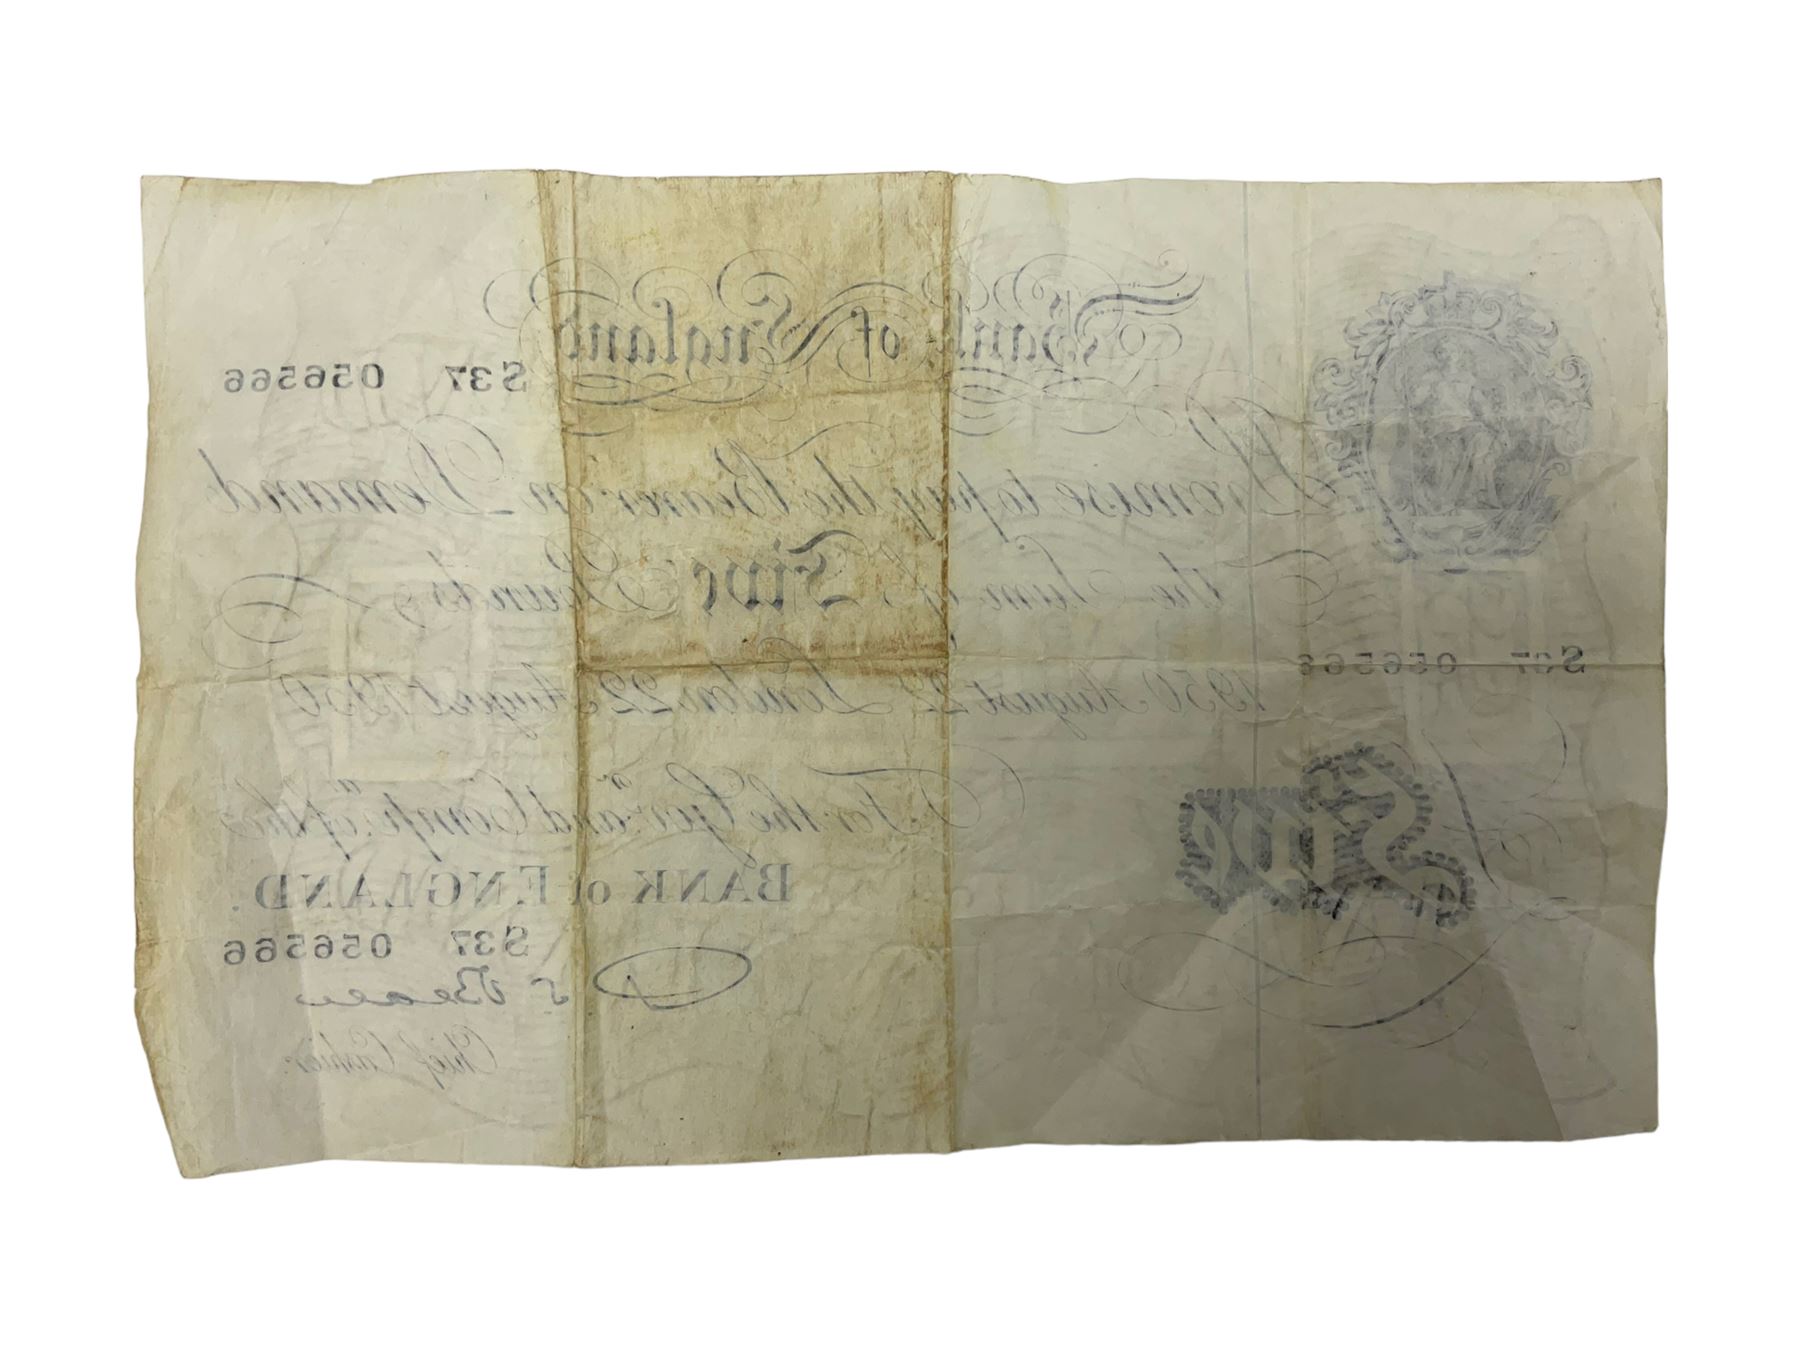 Bank of England
S37 056566
Promise to pay the Bearer on Demand
the Sum of Five Pounds
S37 056566
1950 August 22 London 22 August 1950
For the Govr. and Compa. of the
Five
BANK OF ENGLAND.
S37 056566
P S Beale
Chief Cashier.